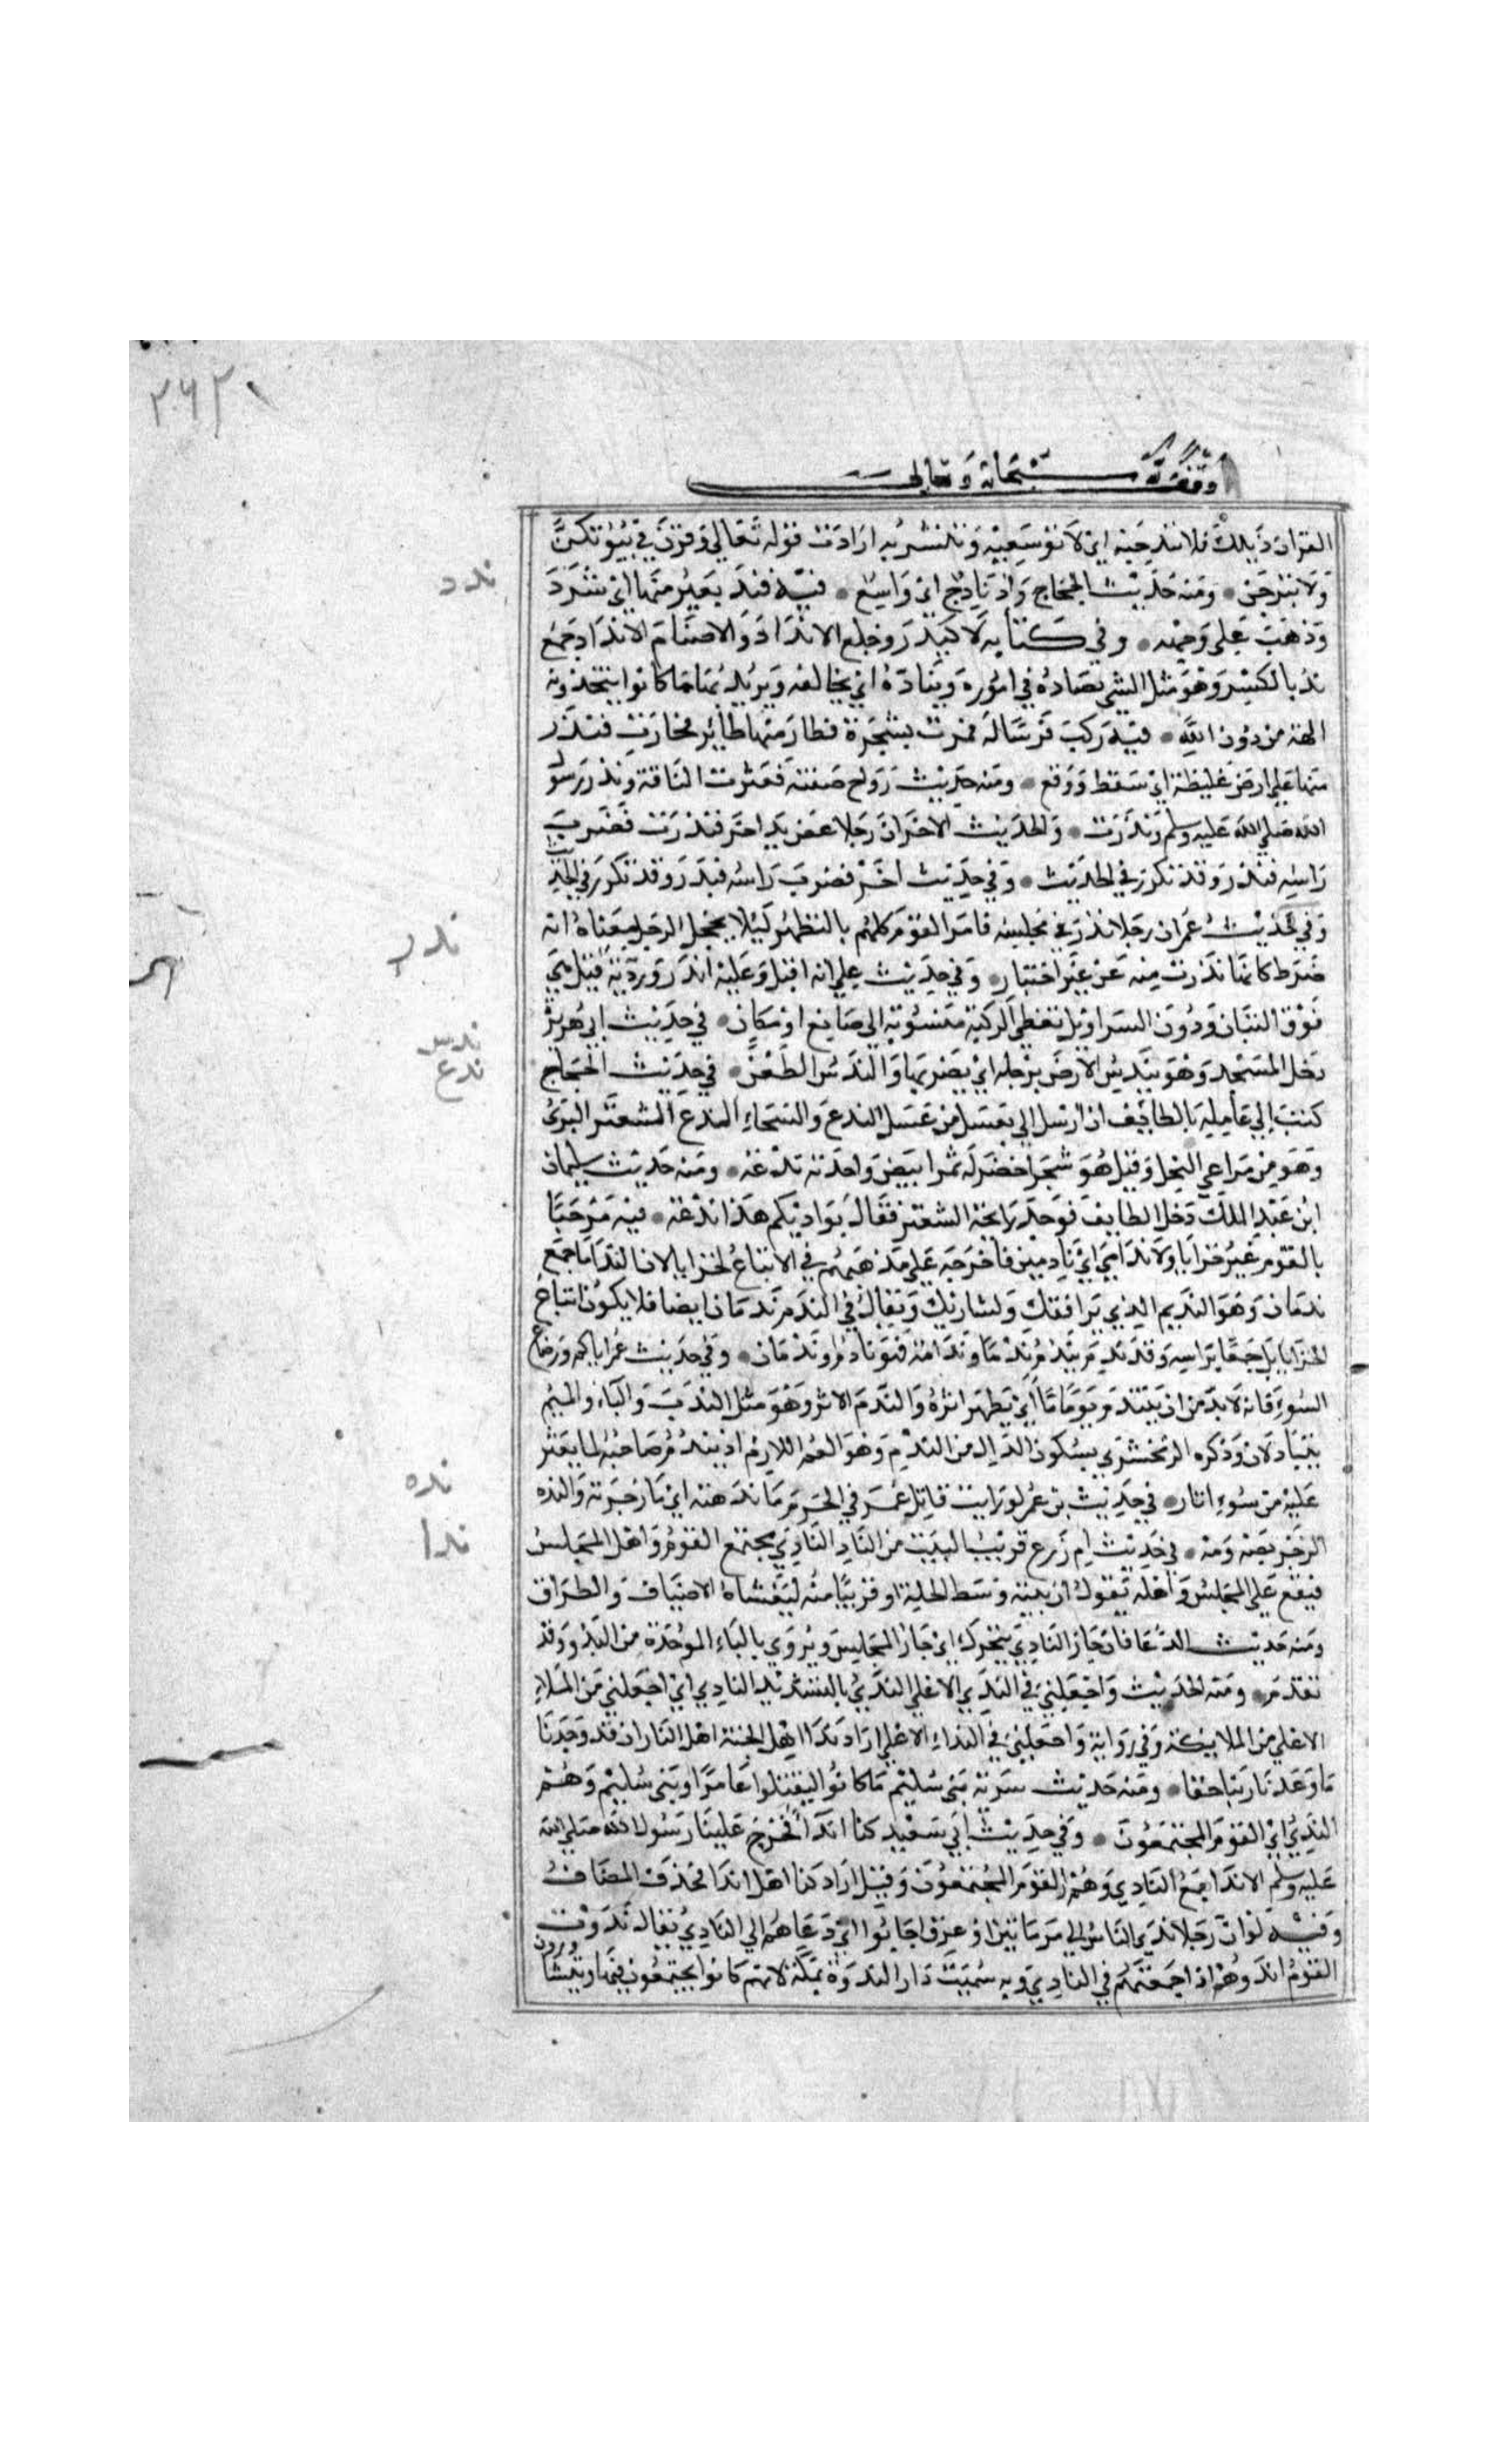 وقف لله سبحانه وتعالى
القران ذيلك فلا تندحيه اي لا توسعيه وتنشريه ارادت قوله تعالى وقرن في بيوتكن
ولا تبرجن ومنه حديث الحجاج واد نادح اي واسع فيه فند بعير منها اي شرد
وذهب على وجهه وفي كتابه لاكيدر وخلع الانداد والاصنام الانداد جمع
ند بالكسر وهو مثل الشي يضاده في اموره ويناده اي يخالفه ويريد بها ما كانوا يتخذونه
الهة من دون الله فيه ركب فرسا له فمرت بشجرة فطار منها طائر فحارت فندر
منها على ارض غليظة اي سقط ووقع ومنه حديث زواج صفية فعثرت الناقة وندر رسول
الله صلى الله عليه وسلم وندرت والحديث الاخر ان رجلا عض يد اخر فندرت فضرب
راسه فندر وقد تكرر في الحديث وفي حديث اخر فضرب راسه فندر وقد تكرر في الحديث
وفي حديث عمر ان رجلا ندر في مجلسه فامر القوم كلهم بالتطهر ليلا يخجل الرجل معناه انه
ضرط كانها ندرت منه عن غير اختيار وفي حديث علي انه اقبل وعليه اندروردية قيل هي
فوق التبان ودون السراويل تغطي الركبة منسوبة الى صانع او مكان في حديث ابي هريرة
دخل المسجد وهو يندس الارض برجله اي يضربها والندس الطعن في حديث الحجاج
كتب الى عامله بالطايف ان ارسل الي بعسل من عسل الندغ والسحاء الندغ السعتر البري
وهو من مراعي النحل وقيل هو شجر اخضر له ثمر ابيض واحدته ندغة ومنه حديث سليمان
ابن عبد الملك دخل الطايف فوجد رايحة السعتر فقال بواديكم هذا ندغة فيه مرحبا
بالقوم غير خزايا ولا ندامى اي نادمين فاخرجه على مذهبهم في الاتباع لخزايا لان الندامى جمع
ندمان وهو النديم الذي يرافقك ويشاربك ويقال في الندم ندمان ايضا فلا يكون اتباع
الخزايا بل جمعا براسه وقد ندم يندم ندما وندامة فهو نادم وندمان وفي حديث عمر اياكم ورضاع
السوء فانه لا بد من ان يتندم يوما ما اي يظهر اثره والندم الاثر وهو مثل الندب والباء والميم
يتبادلان وذكره الزمخشري بسكون الدال من الندم وهو الغم اللازم اذ يندم صاحبه لما يعثر
عليه من سوء اثار في حديث بن عمر لو رايت قاتل عمر في الحرم ما ندهته اي ما زجرته والنده
الزجر بصه ومه في حديث ام زرع قريب البيت من الناد النادي مجتمع القوم واهل المجلس
فيقع على المجلس واهله تقول ان بيته وسط الحلة او قريبا منه ليغشاه الاضياف والطراق
ومنه حديث الدعا فان جار النادي يتحرك اي جار المجلس ويروى بالباء الموحدة من البدو وقد
تقدم ومنه الحديث واجعلني في الندي الاعلى الندي بالتشديد النادي اي اجعلني من الملاء
الاعلى من الملايكة وفي رواية واجعلني في النداء الاعلى اراد ندا اهل الجنة اهل النار ان قد وجدنا
ما وعدنا ربنا حقا ومنه حديث سرية بني سليم ما كانوا ليقتلوا عامرا وبني سليم وهم
الندي اي القوم المجتمعون وفي حديث ابي سعيد كنا اندا فخرج علينا رسول الله صلى الله
عليه وسلم الاندا جمع النادي وهم القوم المجتمعون وقيل اراد كنا اهل اندا فحذف المضاف
وفيه لو ان رجلا ندى الناس الى مرماتين او عرق اجابوا اي دعاهم الى النادي يقال ندوت
القوم اندوهم اذا جمعتهم في النادي وبه سميت دار الندوة بمكة لانهم كانوا يجتمعون فيها ويتشاورون
ندد
ندر
ندس
ندغ
نده
ندا